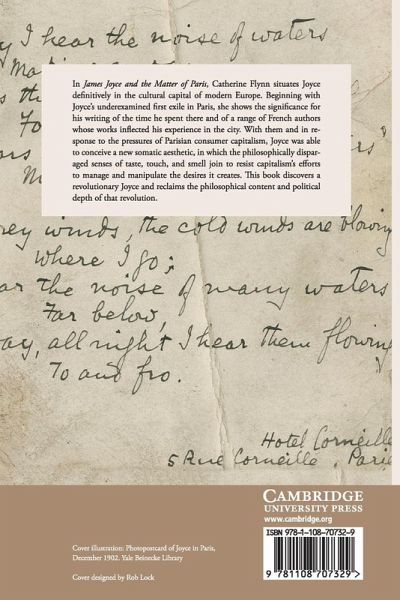 y I hear the noise of waters
In James Joyce and the Matter of Paris, Catherine Flynn situates Joyce
definitively in the cultural capital of modern Europe. Beginning with
Joyce's underexamined first exile in Paris, she shows the significance for
his writing of the time he spent there and of a range of French authors
whose works inflected his experience in the city. With them and in re-
sponse to the pressures of Parisian consumer capitalism, Joyce was able
to conceive a new somatic aesthetic, in which the philosophically dispar-
aged senses of taste, touch, and smell join to resist capitalism's efforts
to manage and manipulate the desires it creates. This book discovers a
revolutionary Joyce and reclaims the philosophical content and political
depth of that revolution.
ey winds, the cold winds are blowing
where I go;
ar the noise of many waters
Far below,
ay, all night I hear them flowing
To and fro.
Hotel Corneille
5 Rue Corneille, Paris
CAMBRIDGE
UNIVERSITY PRESS
www.cambridge.org
Cover illustration: Photopostcard of Joyce in Paris,
December 1902. Yale Beinecke Library
Cover designed by Rob Lock
ISBN 978-1-108-70732-9
9 781108 707329 >